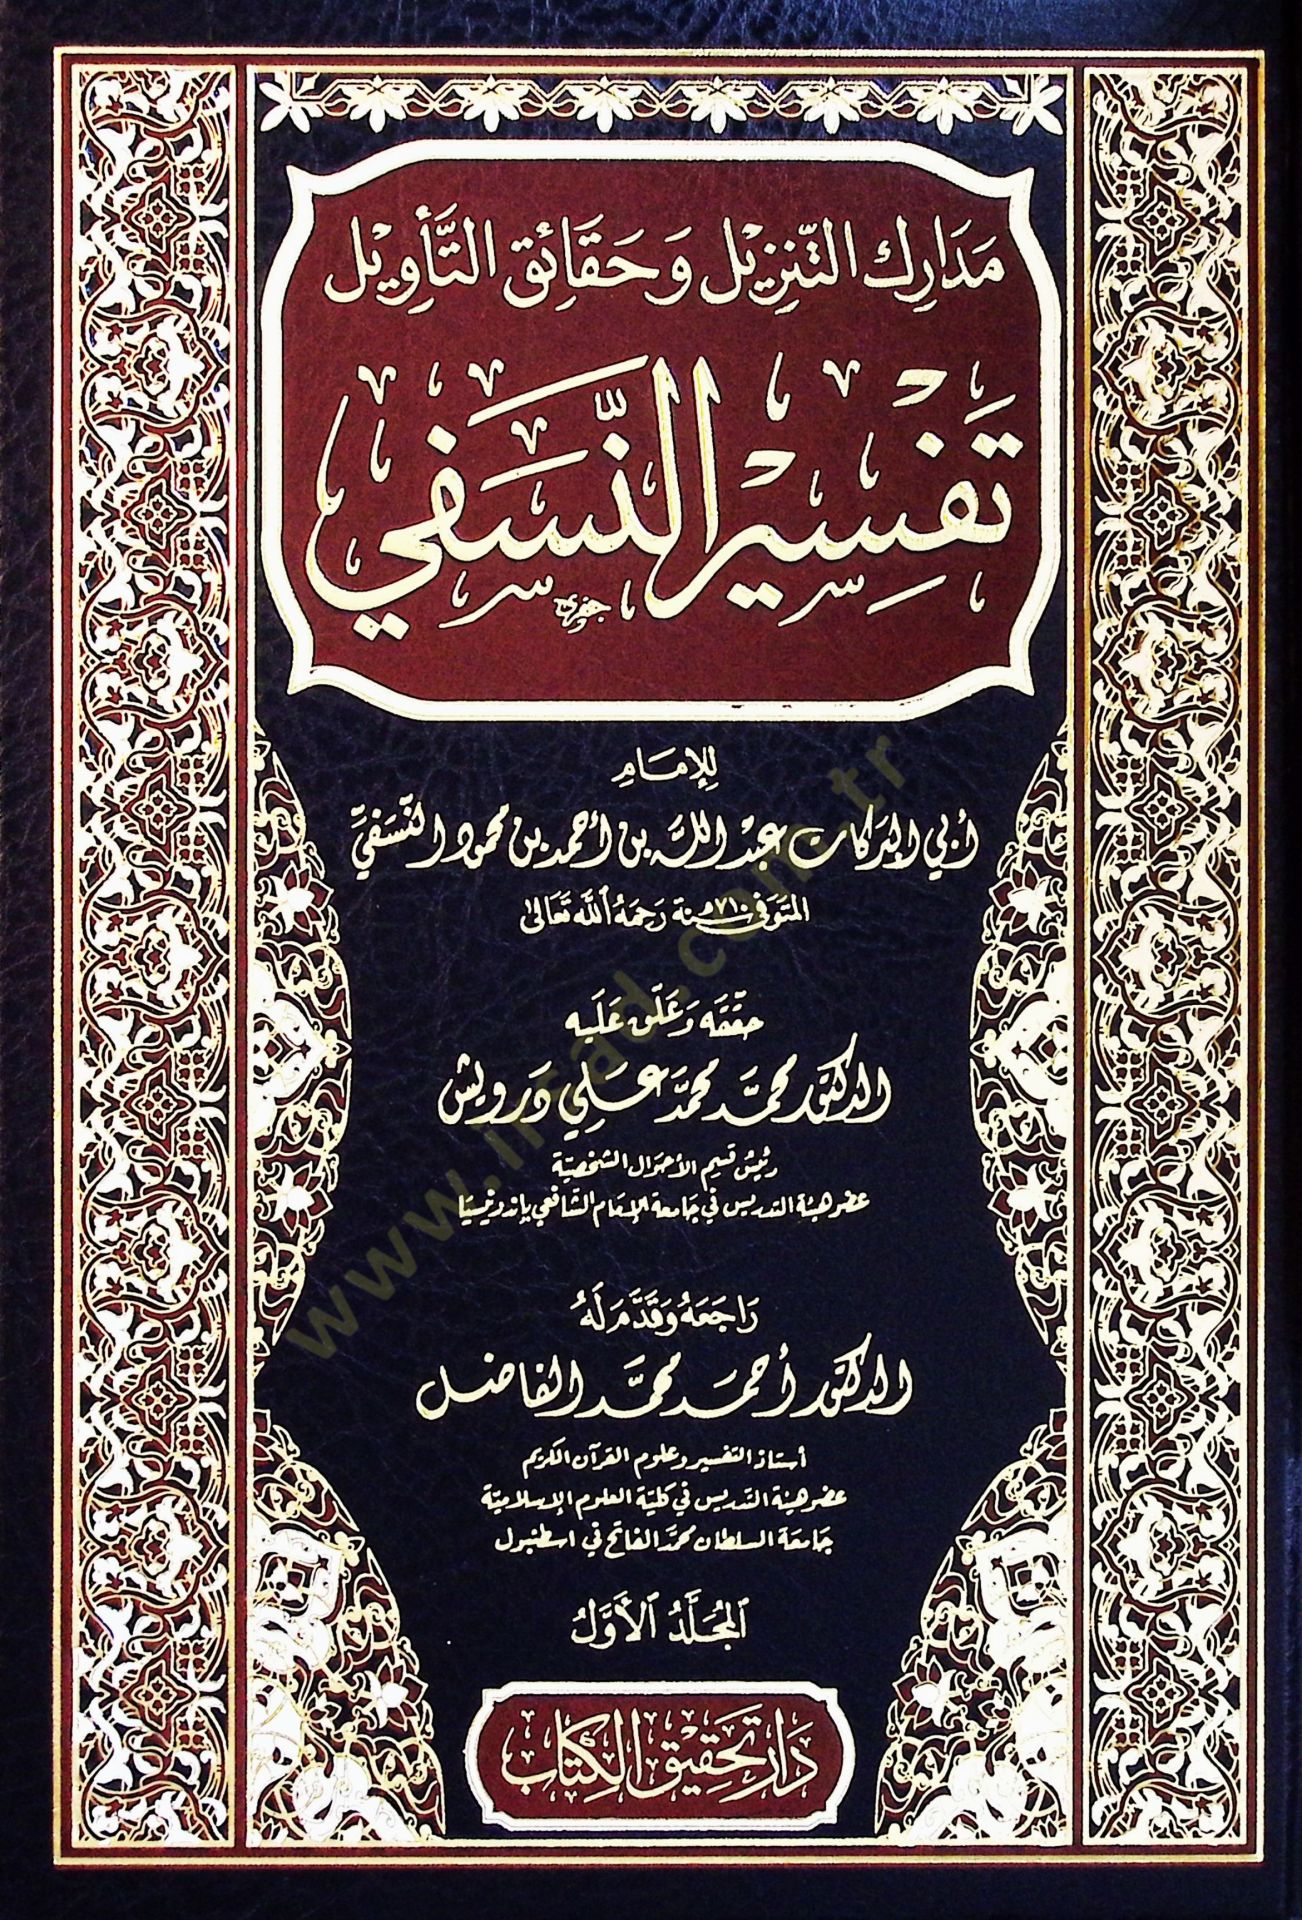 مدارك التنزيل وحقائق التأويل
تفسير النسفي
للإمام
أبي البركات عبد الله بن أحمد بن محمود النسفي
المتوفى سنة ٧١٠هـ رحمه الله تعالى
حققه وعلق عليه
الدكتور محمد محمد علي درويش
رئيس قسم الأحوال الشخصية
عضو هيئة التدريس في جامعة الإمام الشافعي بإندونيسيا
راجعه وقدم له
الدكتور أحمد محمد الفاضل
أستاذ التفسير وعلوم القرآن الكريم
عضو هيئة التدريس في كلية العلوم الإسلامية
جامعة السلطان محمد الفاتح في اسطنبول
المجلد الأول
دار تحقيق الكتاب
www.irsad.com.tr